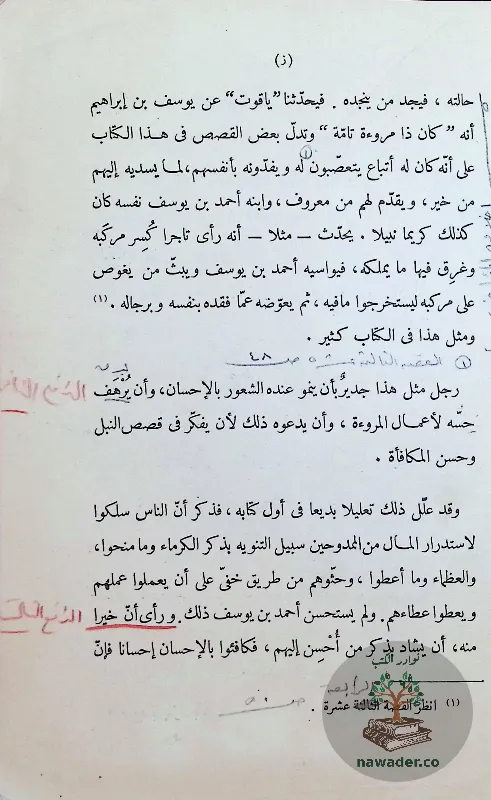 (ز)
حالته ، فيجد من ينجده . فيحدّثنا "ياقوت" عن يوسف بن إبراهيم
أنه "كان ذا مروءة تامّة" وتدلّ بعض القصص فى هذا الكتاب
على أنّه كان له أتباع يتعصّبون له ويفدّونه بأنفسهم، لما يسديه إليهم
من خير، ويقدّم لهم من معروف، وابنه أحمد بن يوسف نفسه كان
كذلك كريما نبيلا . يحدّث — مثلا — أنه رأى تاجرا كُسِر مركبه
وغرِق فيها ما يملكه، فيواسيه أحمد بن يوسف ويبثّ من يغوص
على مركبه ليستخرجوا مافيه، ثم يعوّضه عمّا فقده بنفسه و برجاله .(١)
ومثل هذا فى الكتاب كثير .
القصة الثالثة عشرة ص ٤٨
رجل مثل هذا جديرٌ بأن ينمو عنده الشعور بالإحسان، وأن يُرْهَف
حِسّه لأعمال المروءة ، وأن يدعوه ذلك لأن يفكّر فى قصص النبل
وحسن المكافأة .
وقد علّل ذلك تعليلا بديعا فى أول كتابه، فذكر أنّ الناس سلكوا
لاستدرار المال من الممدوحين سبيل التنويه بذكر الكرماء وما منحوا،
والعظماء وما أعطوا ، وحثّوهم من طريق خفىّ على أن يعملوا عملهم
ويعطوا عطاءهم . ولم يستحسن أحمد بن يوسف ذلك . ورأى أنّ خيرا
منه، أن يشاد بذكر من أُحْسِن إليهم ، فكافئوا بالإحسان إحسانا فإنّ
(١) انظر القصة الثالثة عشرة .
نوادر الكتب
nawader.co